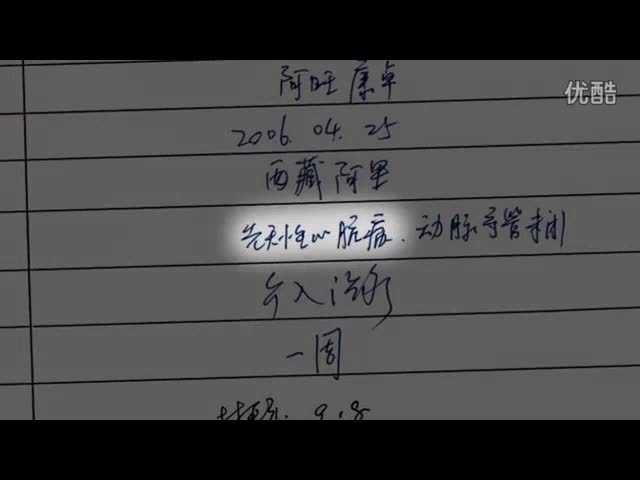 阿旺康卓
优酷
2006.04.25
西藏阿里
先天性心脏病、动脉导管
介入治疗
一周
9.8